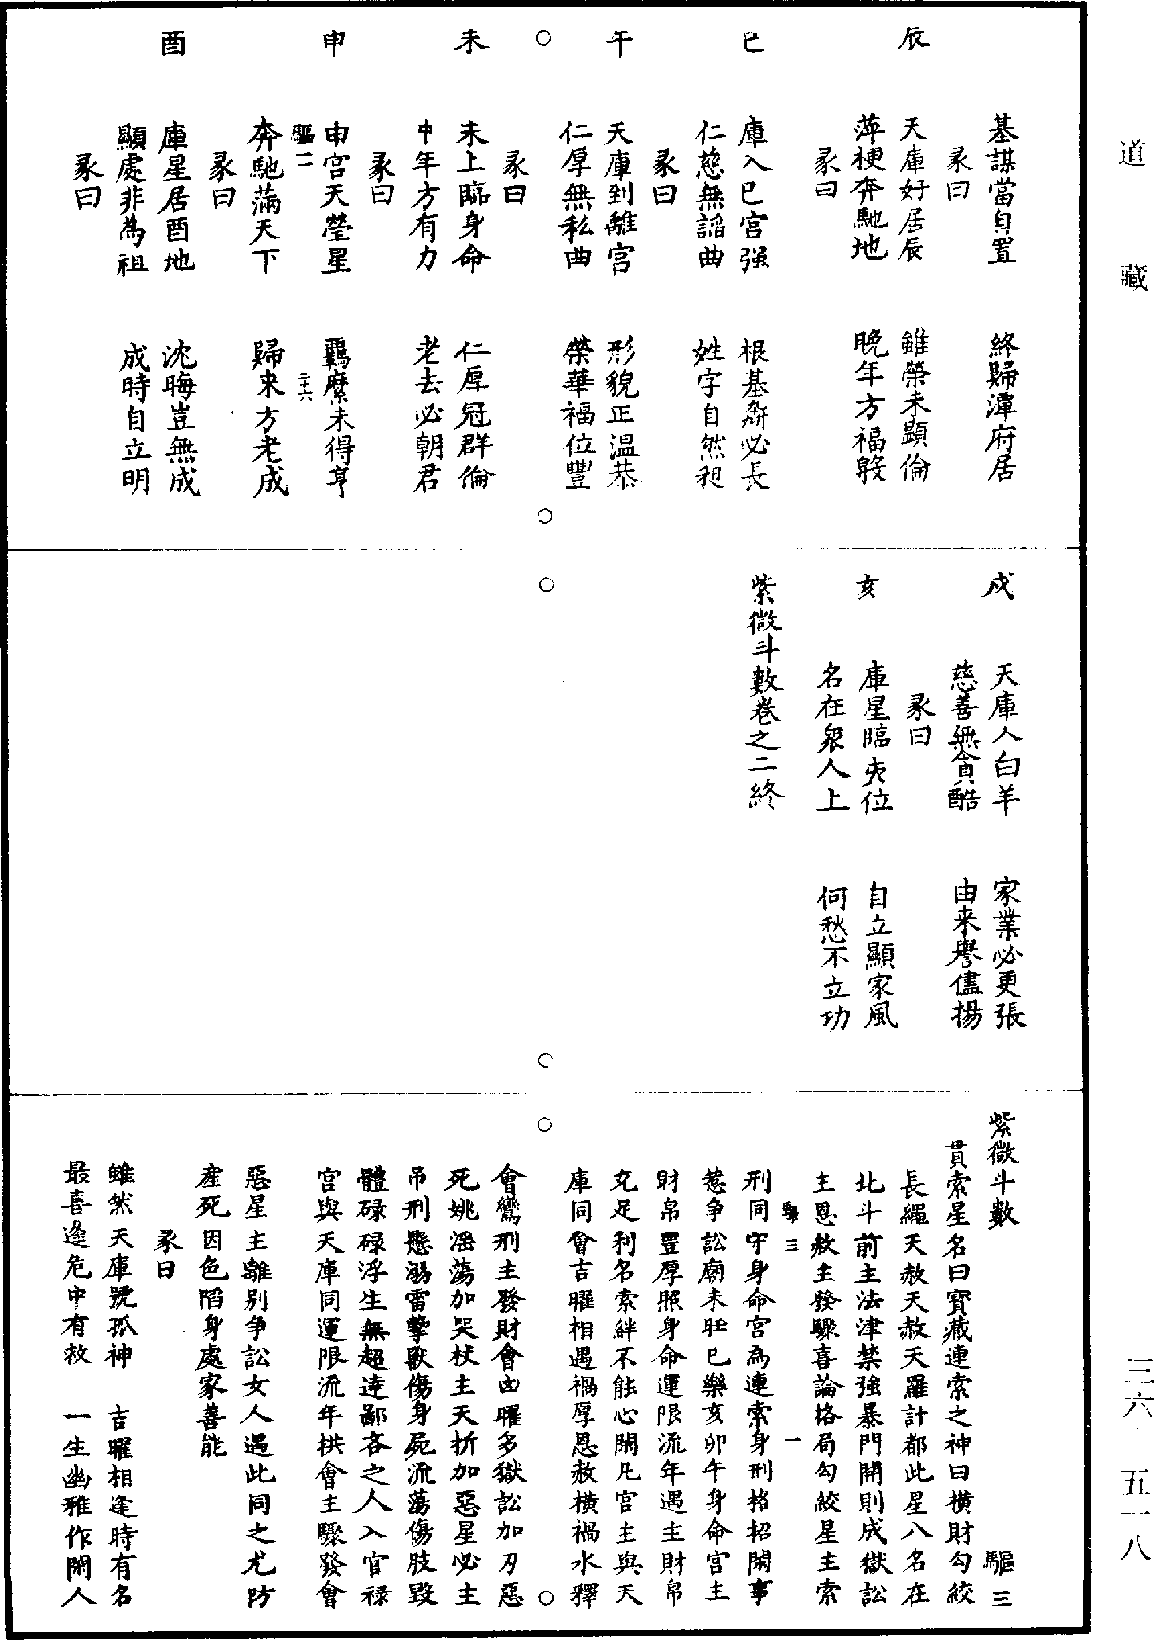 道藏
三六 五一八
基謀當自置 終歸潭府居
彖曰
辰 天庫好居辰 雖榮未顯倫
萍梗奔馳地 晚年方福臻
彖曰
巳 庫入巳宮强 根基㪽必長
仁慈無謟曲 姓字自然昶
彖曰
午 天庫到離宮 形貌正温恭
仁厚無私曲 榮華福位豐
彖曰
未 未上臨身命 仁厚冠群倫
中年方有力 老去必朝君
彖曰
申 申宮天瑩星 羈縻未得亨
驅二 二十六
奔馳滿天下 歸來方老成
彖曰
酉 庫星居酉地 沈晦豈無成
顯處非為祖 成時自立明
彖曰
戍 天庫人白羊 家業必更張
慈善無貪酷 由来譽儘揚
彖曰
亥 庫星臨亥位 自立顯家風
名在衆人上 何愁不立功
紫微斗數卷之二終
紫微斗數 驅三
貫索星名曰寶藏連索之神曰橫財勾絞
長繩天赦天赦天羅計都此星八名在
北斗前主法津禁強暴門開則成獄訟
主恩赦主發驟喜論格局勾絞星主索
驅三 一
刑同守身命宮為連索身刑格招鬧事
惹争訟廟未旺巳樂亥卯午身命宮主
財帛豐厚照身命運限流年遇主財帛
充足利名索絆不能心閑凡宮主與天
庫同會吉曜相遇禍厚恩赦橫禍水釋
會鸞刑主發財會凶曜多獄訟加刃惡
死姚滛蕩加哭杖主天折加惡星必主
吊刑懸溺雷擊獸傷身屍流蕩傷肢毀
體碌碌浮生無超逹鄙吝之人入官祿
宮與天庫同運限流年拱會主驟發會
惡星主離别争訟女人遇此同之尤防
産死因色陷身處家善能
彖曰
雖然天庫號孤神 吉曜相逢時有名
最喜逢危中有救 一生幽雅作閑人